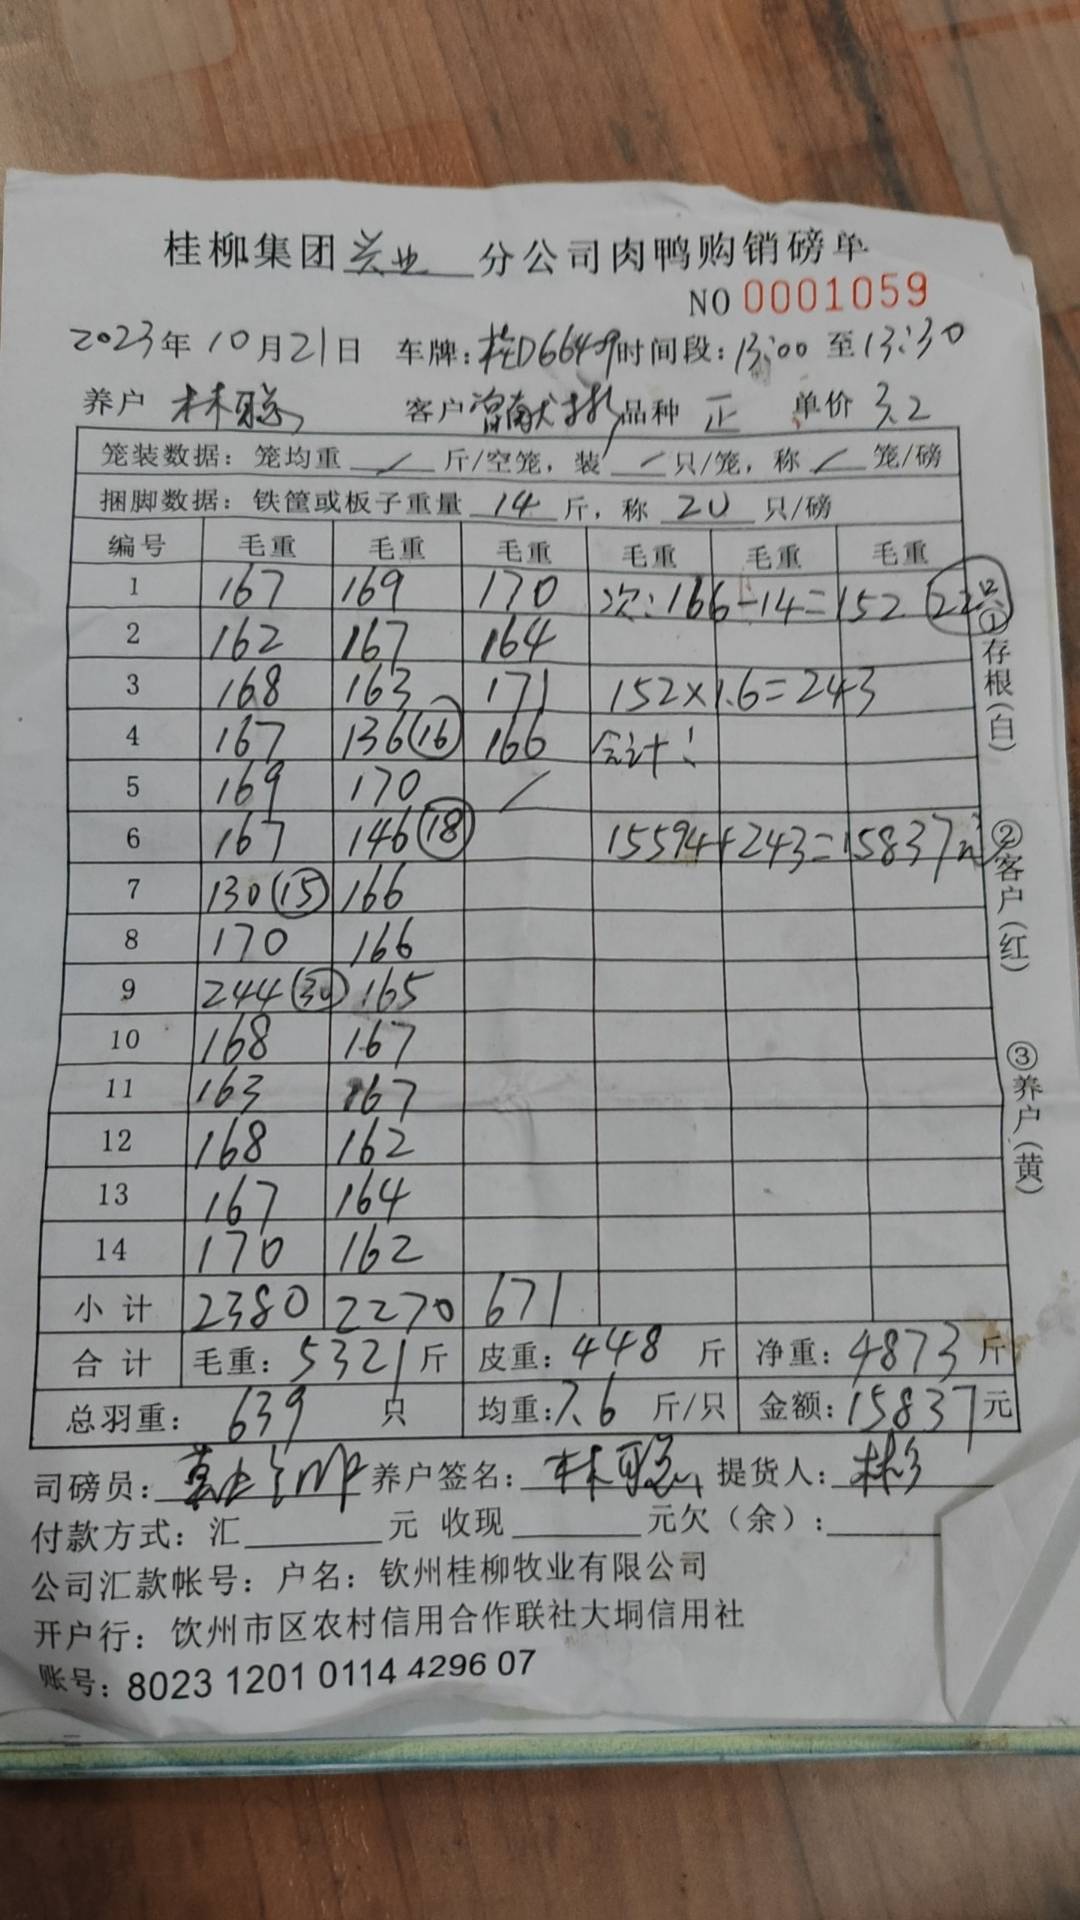 桂柳集团兴业分公司肉鸭购销磅单
NO 0001059
2023年10月21日 车牌:桂D66409时间段:13:00至13:30
养户 林聪 客户 品种 正 单价 3.2
笼装数据: 笼均重 / 斤/空笼, 装 / 只/笼, 称 / 笼/磅
捆脚数据: 铁筐或板子重量 14 斤, 称 20 只/磅
编号 毛重 毛重 毛重 毛重 毛重 毛重
1 167 169 170 次:166-14=152 22只
2 162 167 164
3 168 163 171 152×1.6=243
4 167 136(16) 166 合计:
5 169 170 /
6 167 146(18) 15594+243=15837元
7 130(15) 166
8 170 166
9 244(30) 165
10 168 167
11 163 167
12 168 162
13 167 164
14 170 162
小计 2380 2270 671
合计 毛重: 5321斤 皮重: 448 斤 净重: 4873斤
总羽重: 639 只 均重:7.6 斤/只 金额:15837元
司磅员: 养户签名: 林聪 提货人: 彬
付款方式: 汇 元 收现 元欠(余):
公司汇款帐号: 户名: 钦州桂柳牧业有限公司
开户行: 钦州市区农村信用合作联社大垌信用社
账号: 8023 1201 0114 4296 07
①存根(白)
②客户(红)
③养户(黄)